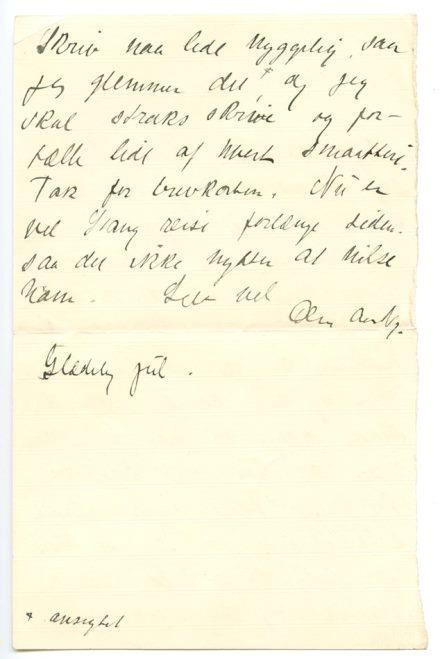 Skriv naa lidt hyggelig, saa
jeg glemmer det +, og jeg
skal straks skrive og for-
tælle lidt af hvert smaatteri.
Tak for brevkortene. Nu er
vel Krag reist forlænge siden,
saa det ikke nytter at hilse
ham. Lev vel
Glædelig jul.
+ ansigtet